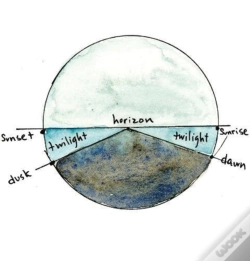 horizon
sunset
sunrise
twilight
twilight
dusk
dawn
WOOK